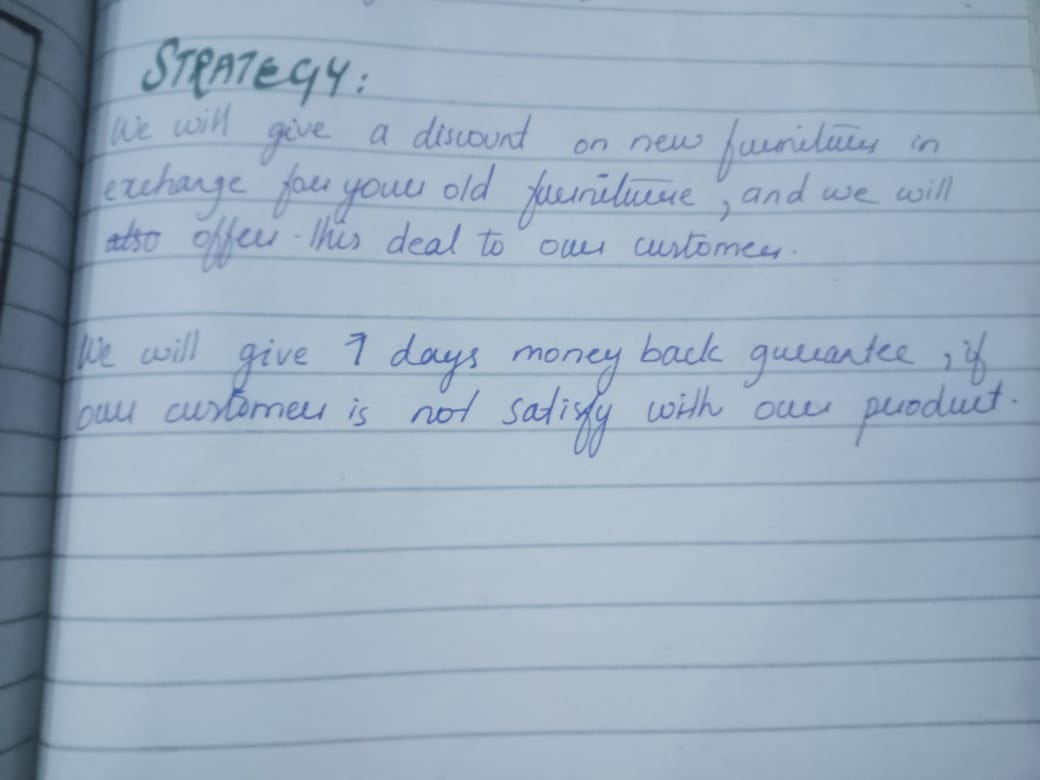 STRATEGY:
We will give a discount on new furniture in
exchange for your old furniture, and we will
also offer this deal to our customer.
We will give 7 days money back guarantee, if
our customer is not satisfy with our product.